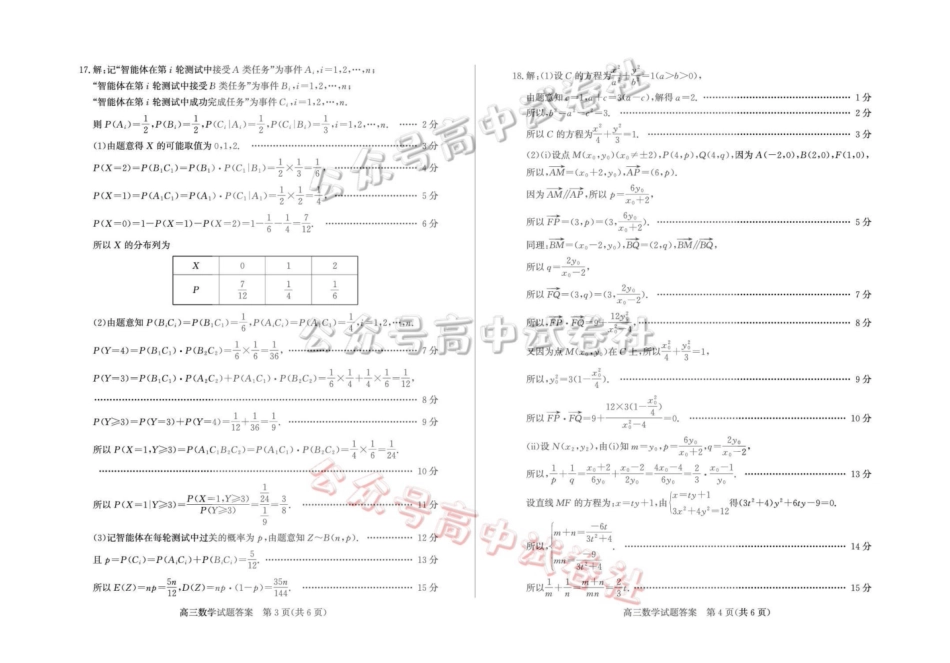 17.解:记“智能体在第 i 轮测试中接受 A 类任务”为事件 Aᵢ,i=1,2,…,n;
“智能体在第 i 轮测试中接受 B 类任务”为事件 Bᵢ,i=1,2,…,n;
“智能体在第 i 轮测试中成功完成任务”为事件 Cᵢ,i=1,2,…,n.
则 P(Aᵢ)=1/2,P(Bᵢ)=1/2,P(Cᵢ|Aᵢ)=1/2,P(Cᵢ|Bᵢ)=1/3,i=1,2,…,n. …… 2分
(1)由题意得 X 的可能取值为 0,1,2. …… 3分
P(X=2)=P(B₁C₁)=P(B₁)·P(C₁|B₁)=1/2×1/3=1/6, …… 4分
P(X=1)=P(A₁C₁)=P(A₁)·P(C₁|A₁)=1/2×1/2=1/4, …… 5分
P(X=0)=1-P(X=1)-P(X=2)=1-1/6-1/4=7/12. …… 6分
所以 X 的分布列为
X 0 1 2
P 7/12 1/4 1/6
(2)由题意知 P(BᵢCᵢ)=P(B₁C₁)=1/6,P(AᵢCᵢ)=P(A₁C₁)=1/4,i=1,2,…,n.
P(Y=4)=P(B₁C₁)·P(B₂C₂)=1/6×1/6=1/36, …… 7分
P(Y=3)=P(B₁C₁)·P(A₂C₂)+P(A₁C₁)·P(B₂C₂)=1/6×1/4+1/4×1/6=1/12,
…… 8分
P(Y≥3)=P(Y=3)+P(Y=4)=1/12+1/36=1/9. …… 9分
所以 P(X=1,Y≥3)=P(A₁C₁B₂C₂)=P(A₁C₁)·P(B₂C₂)=1/4×1/6=1/24.
…… 10分
所以 P(X=1|Y≥3)=P(X=1,Y≥3)/P(Y≥3)=(1/24)/(1/9)=3/8. …… 11分
(3)记智能体在每轮测试中过关的概率为 p,由题意知 Z~B(n,p). …… 12分
且 p=P(Cᵢ)=P(AᵢCᵢ)+P(BᵢCᵢ)=5/12. …… 13分
所以 E(Z)=np=5n/12,D(Z)=np·(1-p)=35n/144. …… 15分
高三数学试题答案 第 3 页(共 6 页)
18.解:(1)设 C 的方程为x²/a²+y²/b²=1(a>b>0),
由题意知 c=1,a+c=3(a-c),解得 a=2. …… 1分
所以,b²=a²-c²=3. …… 2分
所以 C 的方程为x²/4+y²/3=1. …… 3分
(2)(i)设点 M(x₀,y₀)(x₀≠±2),P(4,p),Q(4,q),因为 A(-2,0),B(2,0),F(1,0),
所以,AM=(x₀+2,y₀),AP=(6,p).
因为 AM//AP,所以 p=6y₀/(x₀+2),
所以 FP=(3,p)=(3,6y₀/(x₀+2)). …… 5分
同理:BM=(x₀-2,y₀),BQ=(2,q),BM//BQ,
所以 q=2y₀/(x₀-2),
所以 FQ=(3,q)=(3,2y₀/(x₀-2)). …… 7分
所以,FP·FQ=9+12y₀²/(x₀²-4), …… 8分
又因为点 M(x₀,y₀)在 C 上,所以x₀²/4+y₀²/3=1,
所以,y₀²=3(1-x₀²/4). …… 9分
所以 FP·FQ=9+12×3(1-x₀²/4)/(x₀²-4)=0. …… 10分
(ii)设 N(x₂,y₂),由(i)知 m=y₀,p=6y₀/(x₀+2),q=2y₀/(x₀-2),
所以,1/p+1/q=(x₀+2)/6y₀+(x₀-2)/2y₀=(4x₀-4)/6y₀=2/3·(x₀-1)/y₀. …… 13分
设直线 MF 的方程为:x=ty+1,由{x=ty+1 3x²+4y²=12 得(3t²+4)y²+6ty-9=0.
所以,{m+n=-6t/(3t²+4) mn=-9/(3t²+4). …… 14分
所以1/m+1/n=(m+n)/mn=2/3 t. …… 15分
高三数学试题答案 第 4 页(共 6 页)
公众号高中试卷社
公众号高中试卷社
公众号高中试卷社